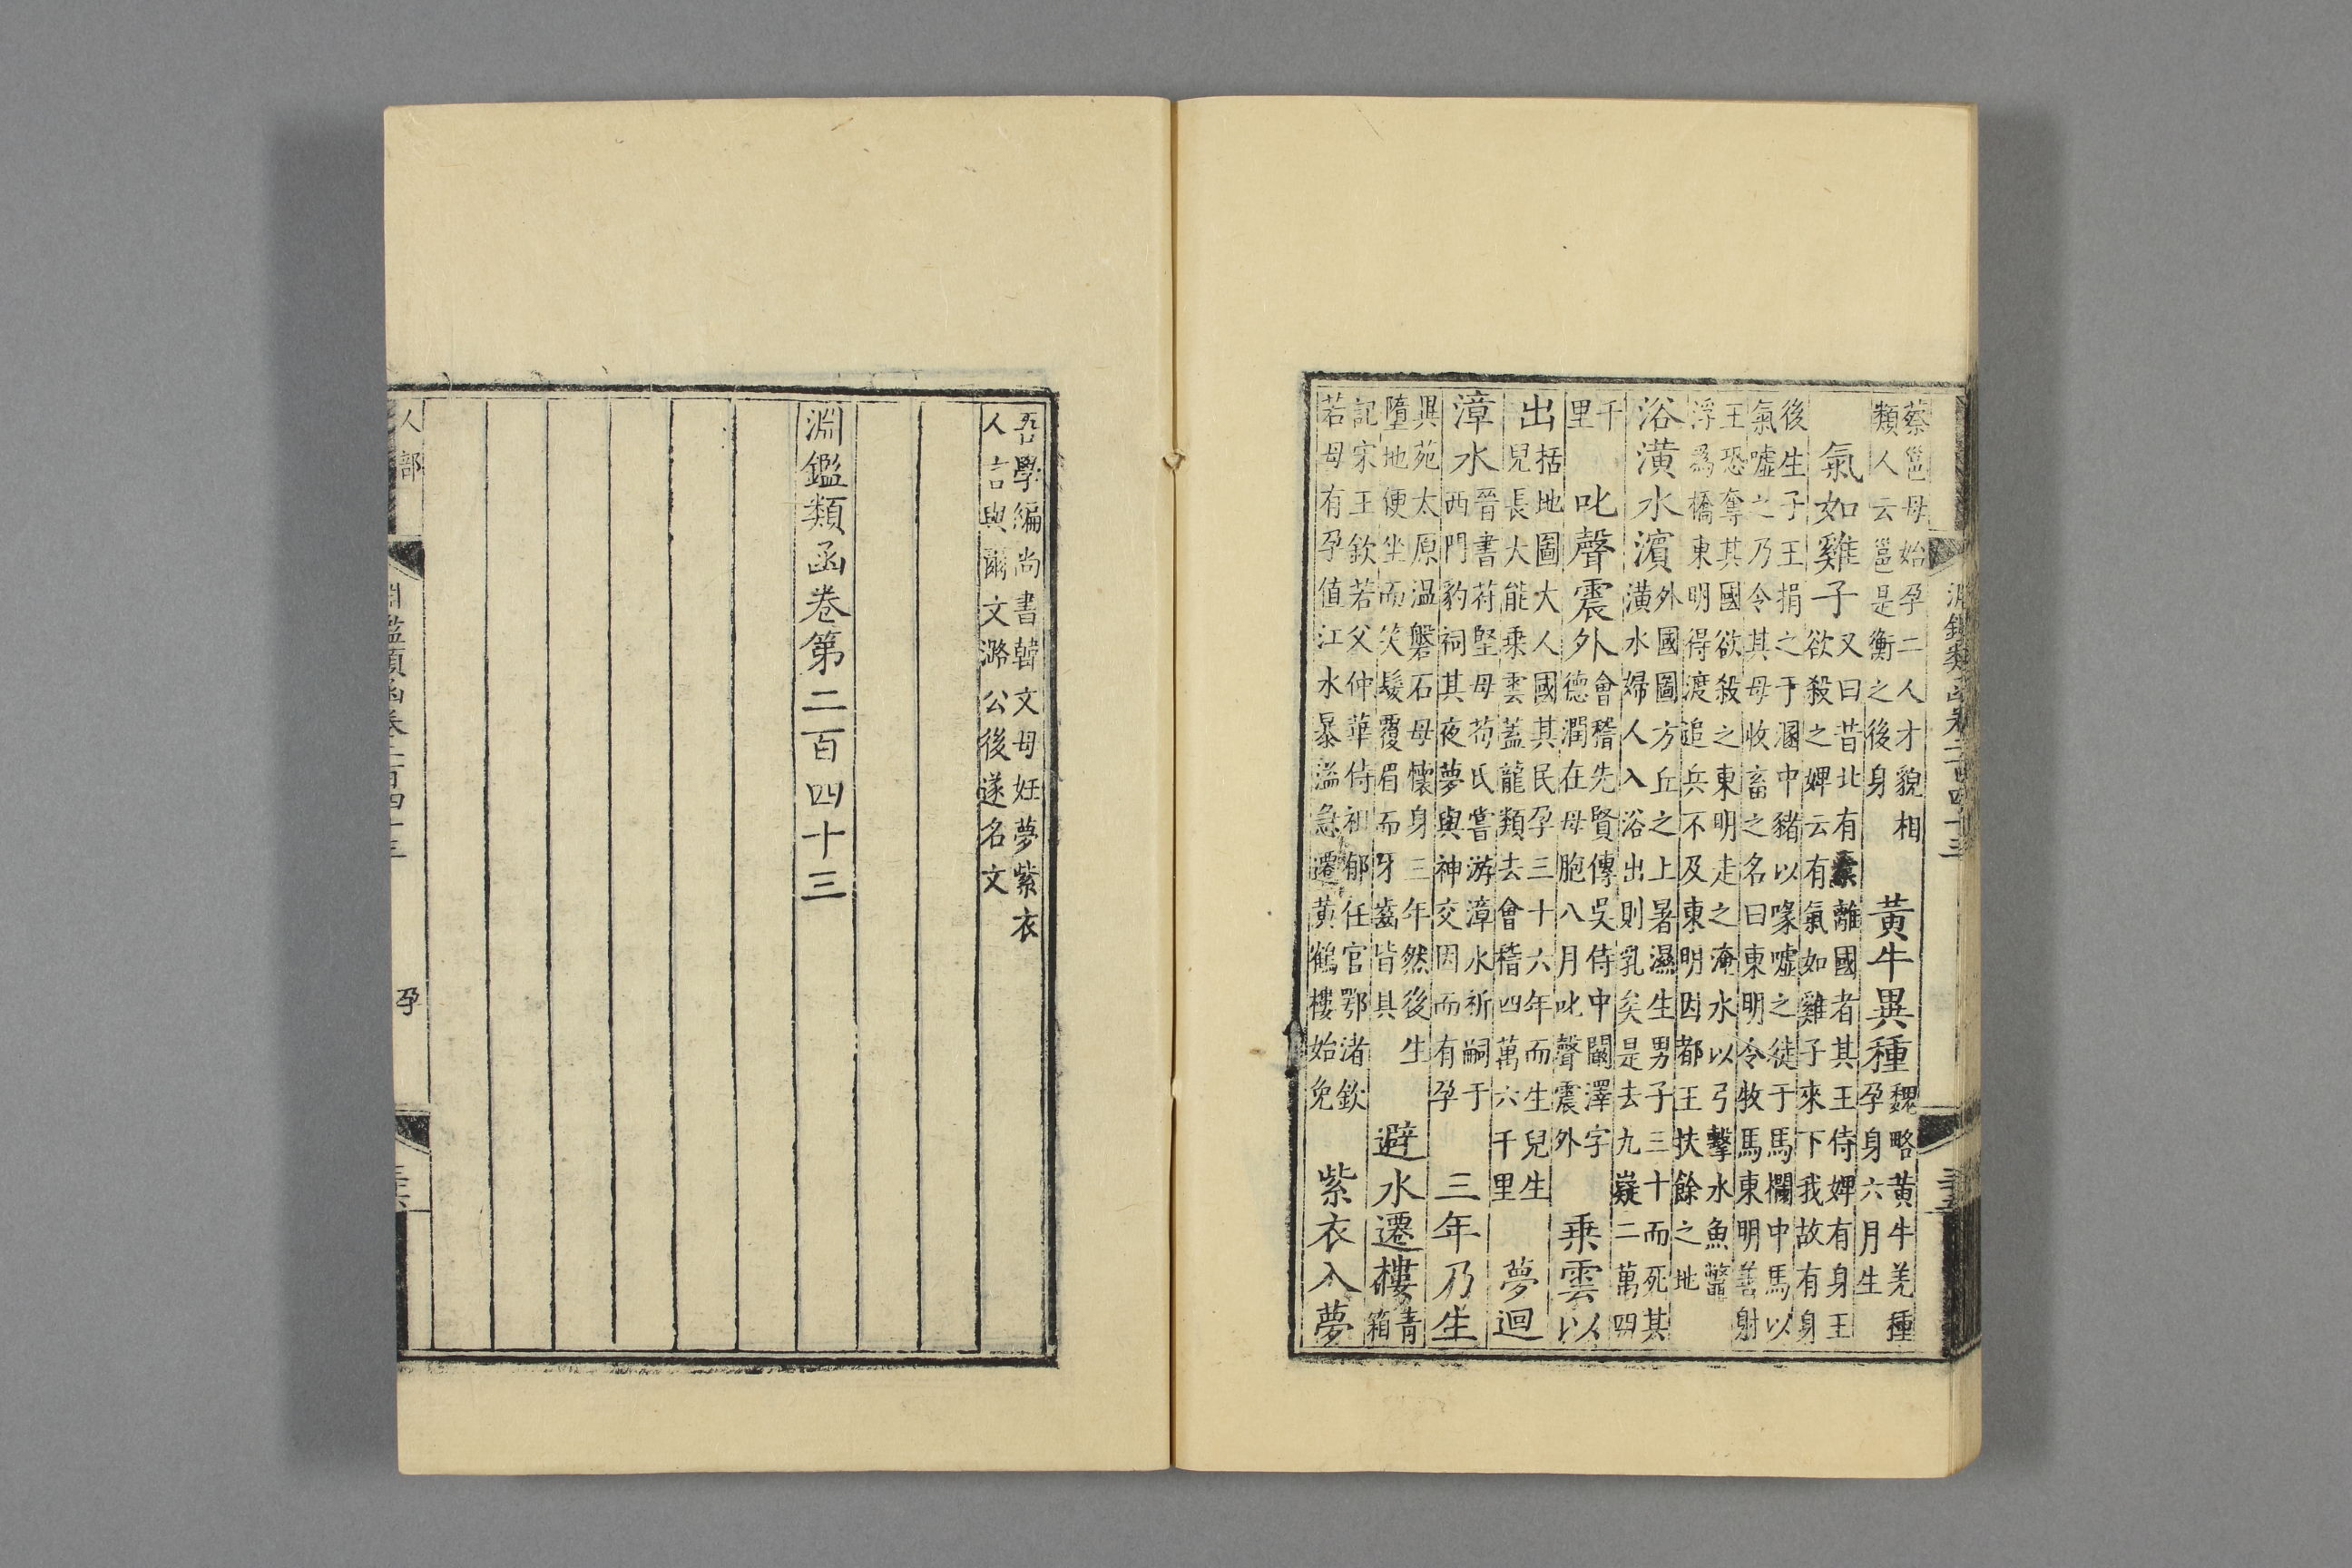 淵鑑類函卷二百四十三
蔡邕母始孕二人才貌相
類人云邕是衡之後身
黃牛異種
魏略黃牛羌種
孕身六月生
氣如雞子
又曰昔北有橐離國者其王侍婢有身王
欲殺之婢云有氣如雞子來下我故有身
後生子王捐之于溷中豬以喙噓之徙于馬欄中馬以
氣噓之乃令其母收畜之名曰東明令牧馬東明善射
王恐奪其國欲殺之東明走之淹水以弓擊水魚鼈
浮爲橋東明得渡追兵不及東明因都王扶餘之地
浴潢水濱
外國圖方丘之上暑濕生男子三十而死其
潢水婦人入浴出則乳矣是去九嶷二萬四
千
里
叱聲震外
會稽先賢傳吳侍中闞澤字
德潤在母胞八月叱聲震外
乗雲以
出
括地圖大人國其民孕三十六年而生兒生
兒長大能乗雲蓋龍類去會稽四萬六千里
夢迴
漳水
晉書苻堅母茍氏嘗游漳水祈嗣于
西門豹祠其夜夢與神交因而有孕
三年乃生
異苑太原溫磐石母懷身三年然後生
墮地便坐而笑髮覆眉而牙齒皆具
避水遷樓
青
箱
記宋王欽若父仲華侍祖郁任官鄂渚欽
若母有孕值江水暴溢急遷黃鶴樓始免
紫衣入夢
吾學編尚書韓文母妊夢紫衣
人言與爾文潞公後遂名文
淵鑑類函卷第二百四十三
人部
淵鑑類函卷二百四十三
孕